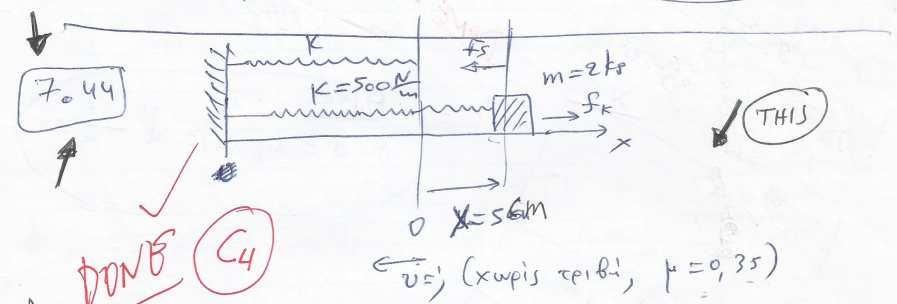 K
Fs
7.44
K=500 N/m
m=2kg
fk
THIS
x
0
X=5cm
DONE
C4
v=; (χωρίς τριβή, μ=0,35)